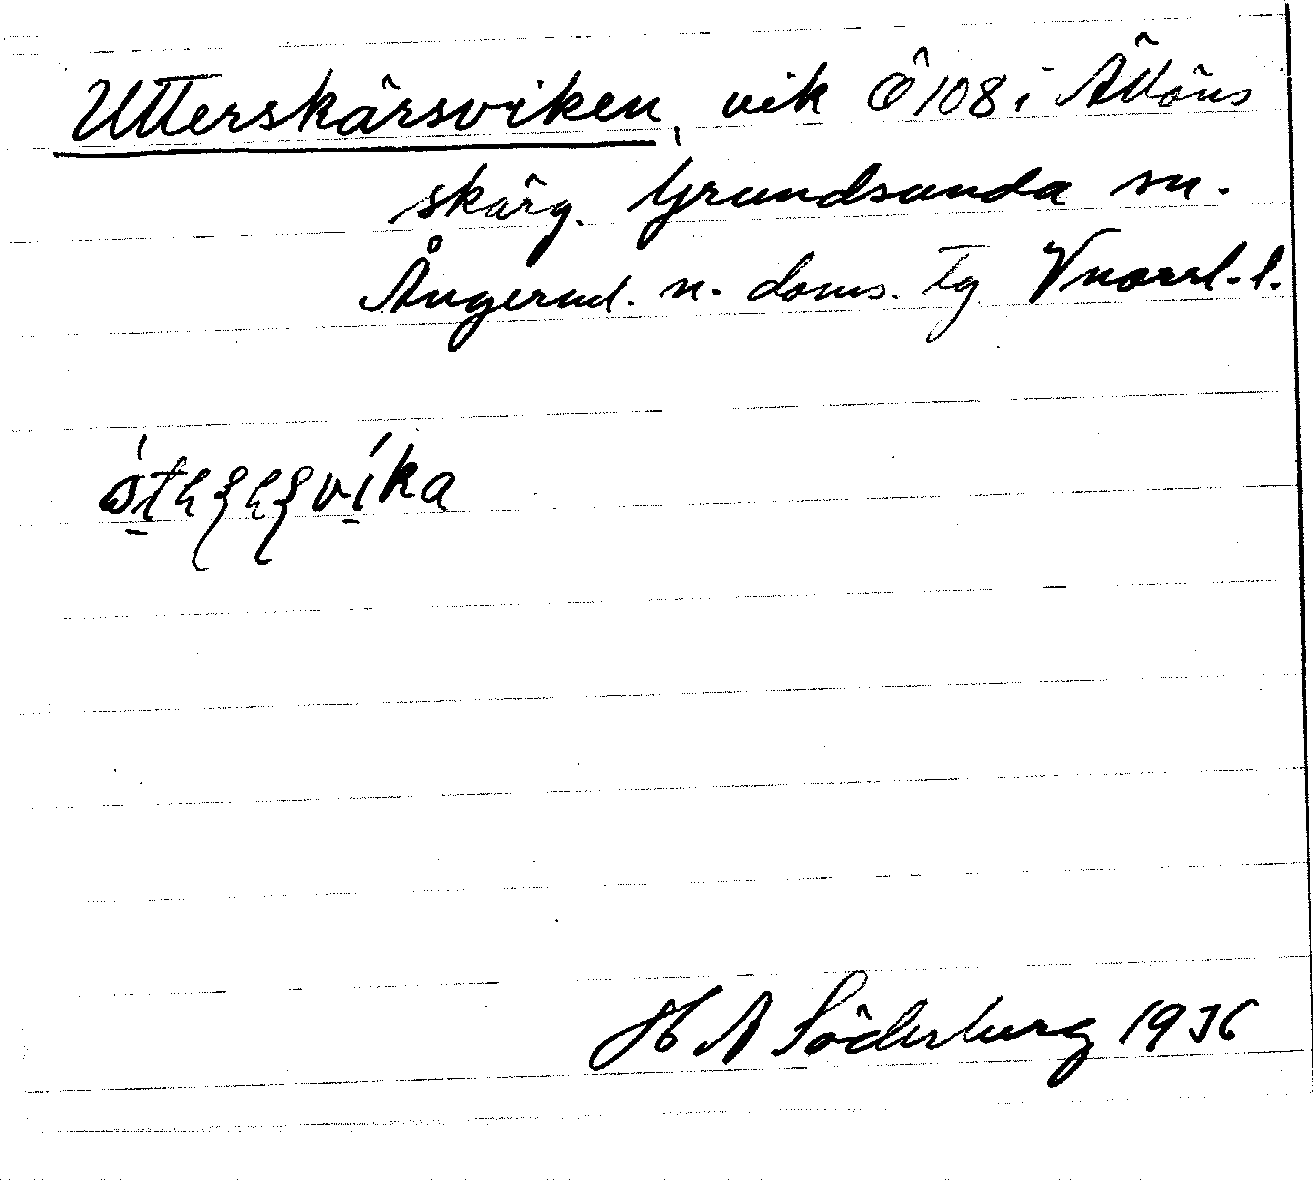 Utterskärsviken, vik Ö 108 i Ällöns
skärg. Grundsunda sn.
Ångerml. n. doms. tg Vnorrl. l.
H A Söderberg 1936